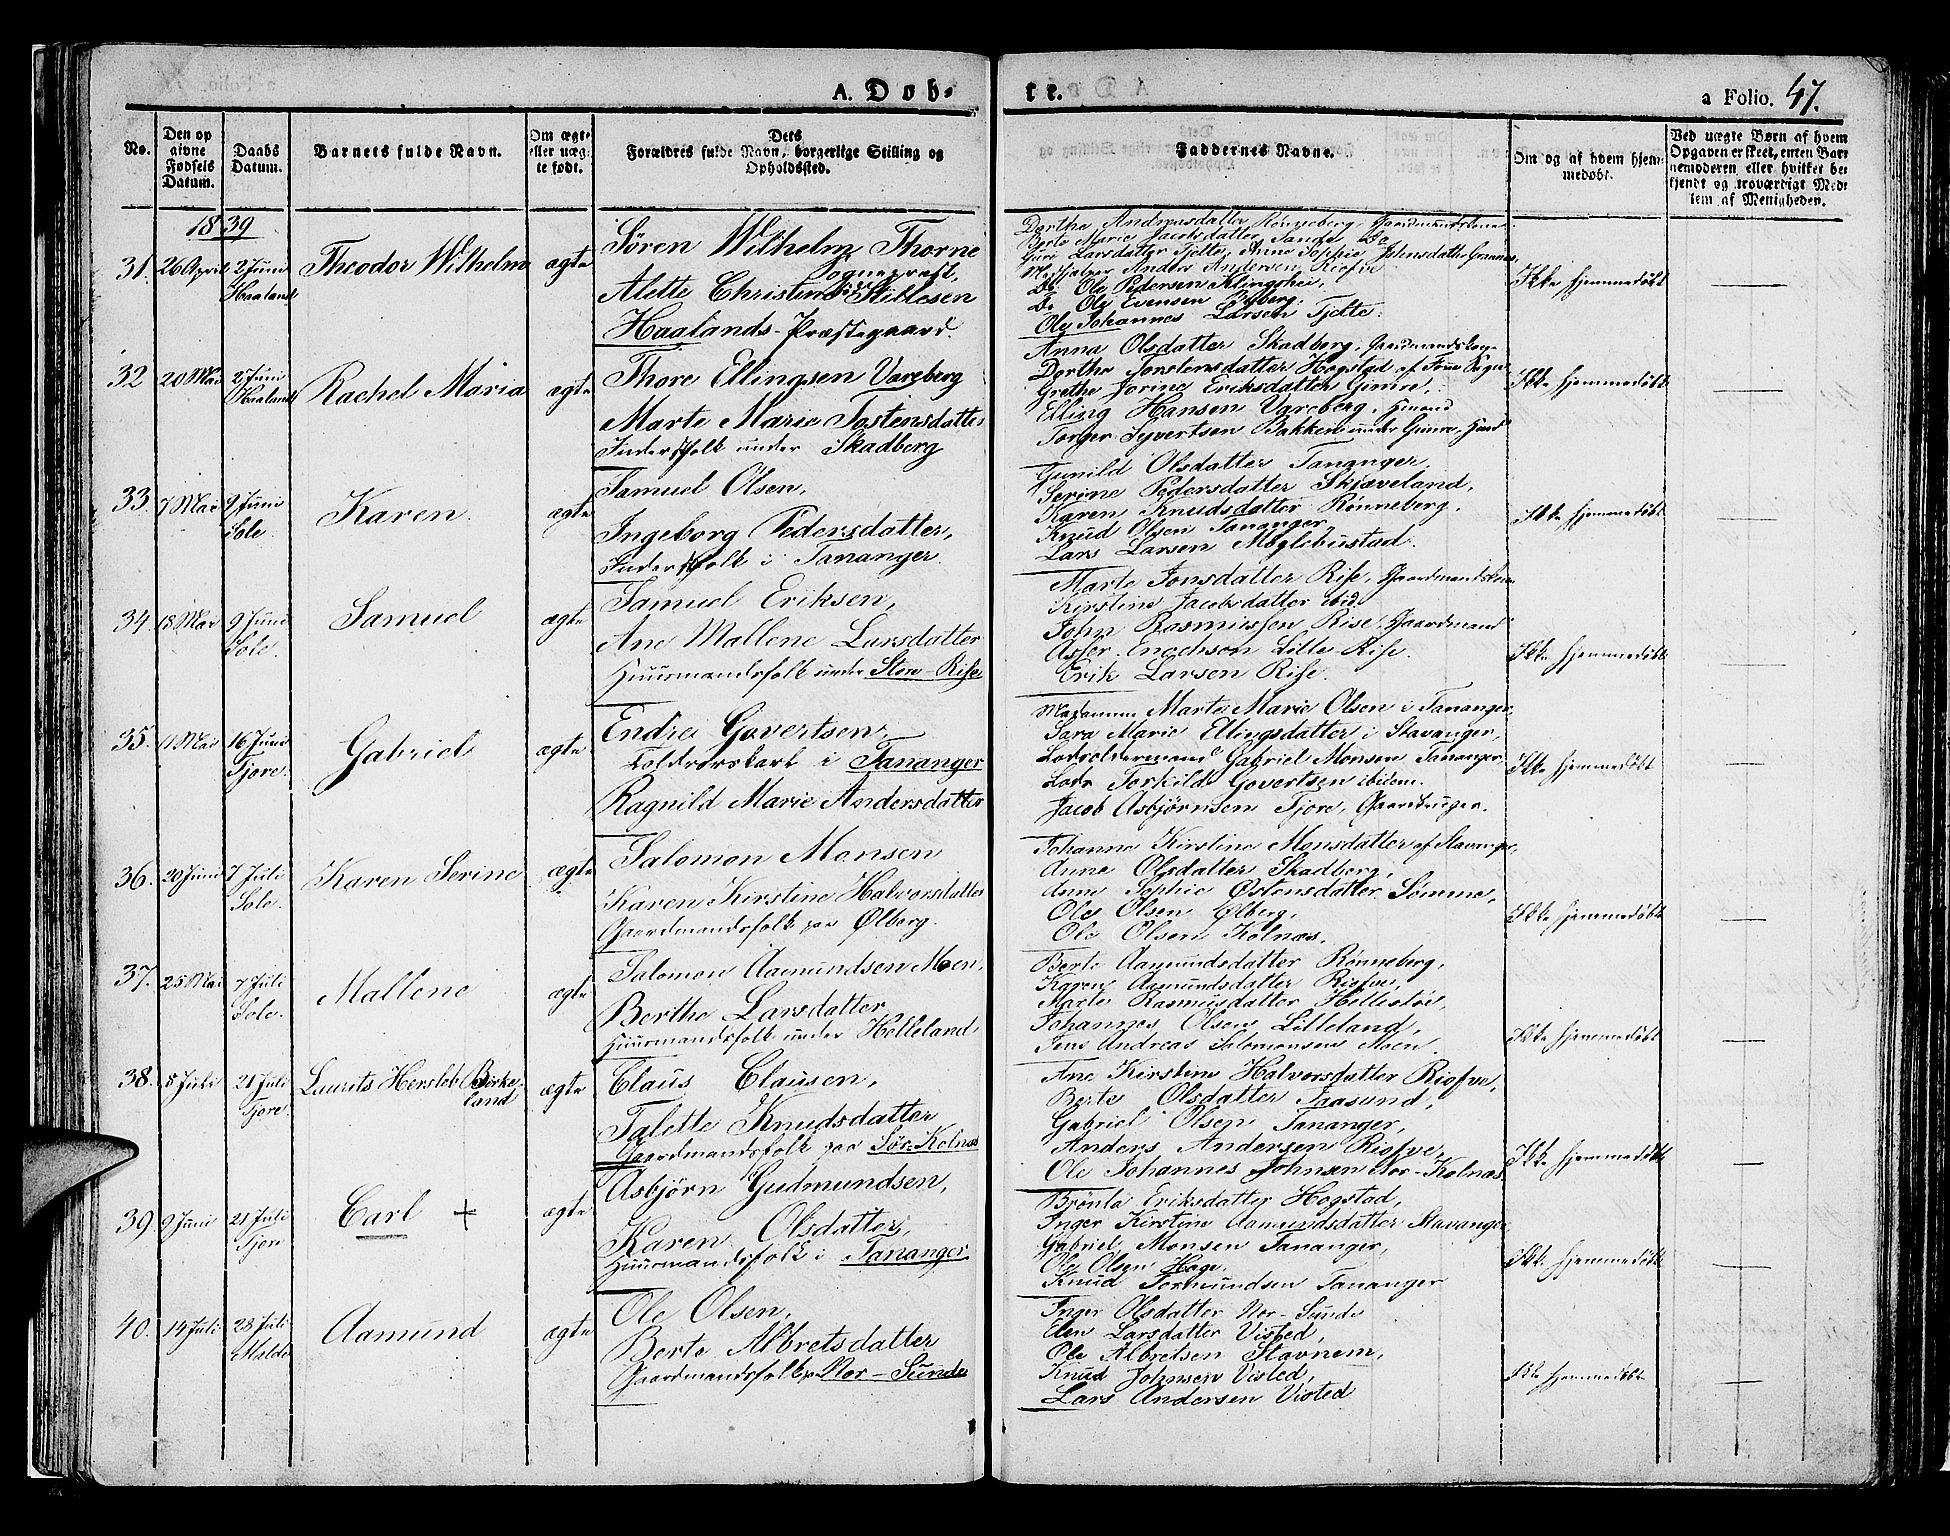 A. Døb-
te.
a Folio. 47.
No.
Den op
givne
Fødsels
Datum.
Daabs
Datum.
Barnets fulde Navn.
Om ægte
eller uæg-
te født.
Dets
Forældres fulde Navn, borgerlige Stilling og
Opholdssted.
Faddernes Navne.
Om og af hvem hjem-
medøbt.
Ved uægte Børn af hvem
Opgaven er skeet, enten Bar-
nemoderen eller hvilket be-
kjendt og troværdigt Med-
lem af Menigheden.
1839
31.
26 April
2 Juni
Haaland
Theodor Wilhelm
ægte
Sören Wilhelm Thorne
Sognepræst,
Alette Christine Kittesen
Haalands-Præstegaard.
Dorthe Andersdatter Rönneberg, Gaardmandskone
Berte Marie Jacobsdatter Tange Do
Guri Larsdatter Tjelte, Anne Sophie Johnsdatter Grannes,
Medhjelper Anders Andersen Riofve
Do Ole Pedersen Klingshei,
Do Ole Evensen Ølberg.
Ole Johannes Larsen Tjelte.
Ikke hjemmedöbt
32
20 Mai
2 Juni
Haaland
Rachel Maria
ægte
Thore Ellingsen Vareberg
Marte Marie Tostensdatter
Inderstfolk under Skadberg
Anna Olsdatter Skadberg, Gaardmandskone
Dorthe Torstensdatter Hogstad af
Grethe Jorine Eriksdatter Gimre,
Elling Hansen Vareberg,
Torger Syvertsen Bakken under Gimre,
Ikke hjemmedöbt
33.
7 Mai
9 Juni
Sole.
Karen.
ægte
Samuel Olsen,
Ingeborg Pedersdatter,
Inderstfolk i Tananger.
Gunild Olsdatter Tananger,
Serine Pedersdatter Skjæveland,
Karen Knudsdatter Rönneberg,
Knud Olsen Tananger,
Lars Larsen Möglebustad.
Ikke hjemmedöbt
34.
18 Mai
9 Juni
Sole.
Samuel
ægte
Samuel Eriksen,
Ane Mallene Larsdatter
Huusmandsfolk under Store-Rise
Marte Jonsdatter Rise, Gaardmandskone
Kirstine Jacobsdatter ibid.
John Rasmussen Rise, Gaardmand
Asser Enochson Litle Rise.
Erik Larsen Rise.
Ikke hjemmedöbt
35.
11 Mai
16 Juni
Tjore.
Gabriel
ægte
Endre Govertsen,
Toldrorskarl i Tananger
Ragnild Marie Andersdatter
Madamme Marte Marie Olsen i Tananger,
Sara Marie Ellingsdatter i Stavanger,
Lodsoldermand Gabriel Monsen Tananger,
Lods Torkild Govertsen ibidem.
Jacob Asbjörnsen Tjore, Gaardbruger.
Ikke hjemmedöbt
36.
20 Juni
7 Juli
Sole.
Karen Serine
ægte
Salomon Monsen
Karen Kirstine Halvorsdatter
Gaardmandsfolk paa Ølberg.
Johanne Kirstine Monsdatter af Stavanger,
Anne Olsdatter Skadberg,
Anne Sophie Østensdatter Sömme,
Ole Olsen Ølberg,
Ole Olsen Kolnæs.
Ikke hjemmedöbt
37.
25 Mai
7 Juli
Sole.
Mallene
ægte
Salomon Aamundsen Moen,
Berthe Larsdatter
Huusmandsfolk under Helleland
Berte Aamundsdatter Rönneberg,
Karen Aamundsdatter Riofve,
Marte Rasmusdatter Hellestöe,
Johannes Olsen Lilleland,
Jens Andreas Salomonsen Moen
Ikke hjemmedöbt
38.
8 Juli
21 Juli
Tjore.
Laurits Hersleb Birke-
land
ægte
Claus Clausen,
Talette Knudsdatter
Gaardmandsfolk paa Sör-Kolnæs
Ane Kirstine Halvorsdatter Riofve,
Berte Olsdatter Jaasund,
Gabriel Olsen Tananger,
Anders Andersen Riofve,
Ole Johannes Johnsen Nor-Kolnæs.
Ikke hjemmedöbt
39
9 Juni
21 Juli
Tjore
Carl +
ægte
Asbjörn Gudmundsen,
Karen Olsdatter,
Huusmandsfolk i Tananger
Brönla Eriksdatter Hogstad,
Inger Kirstine Aamundsdatter Stavanger,
Gabriel Monsen Tananger,
Ole Olsen Hage,
Knud Tormundsen Tananger
Ikke hjemmedöbt
40.
14 Juli
28 Juli
Malde
Aamund
ægte
Ole Olsen,
Berte Albretsdatter
Gaardmandsfolk paa Nor-Sunde
Inger Olsdatter Nor-Sunde
Elen Larsdatter Visted,
Ole Albretsen Stavnem,
Knud Johnsen Visted,
Lars Andersen Visted
Ikke hjemmedöbt